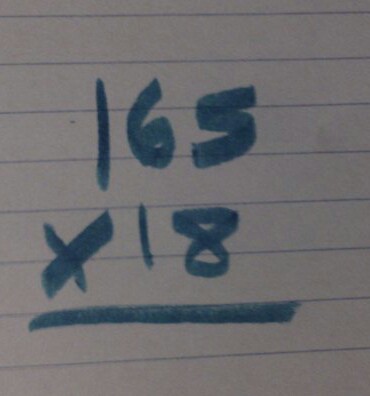 165
x 18